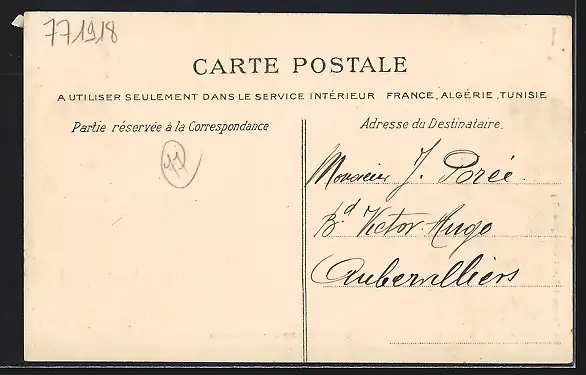 771918
CARTE POSTALE
A UTILISER SEULEMENT DANS LE SERVICE INTÉRIEUR FRANCE, ALGÉRIE, TUNISIE
Partie réservée à la Correspondance
Adresse du Destinataire.
77
Monsieur J. Porée.
Bd Victor-Hugo
Aubervilliers